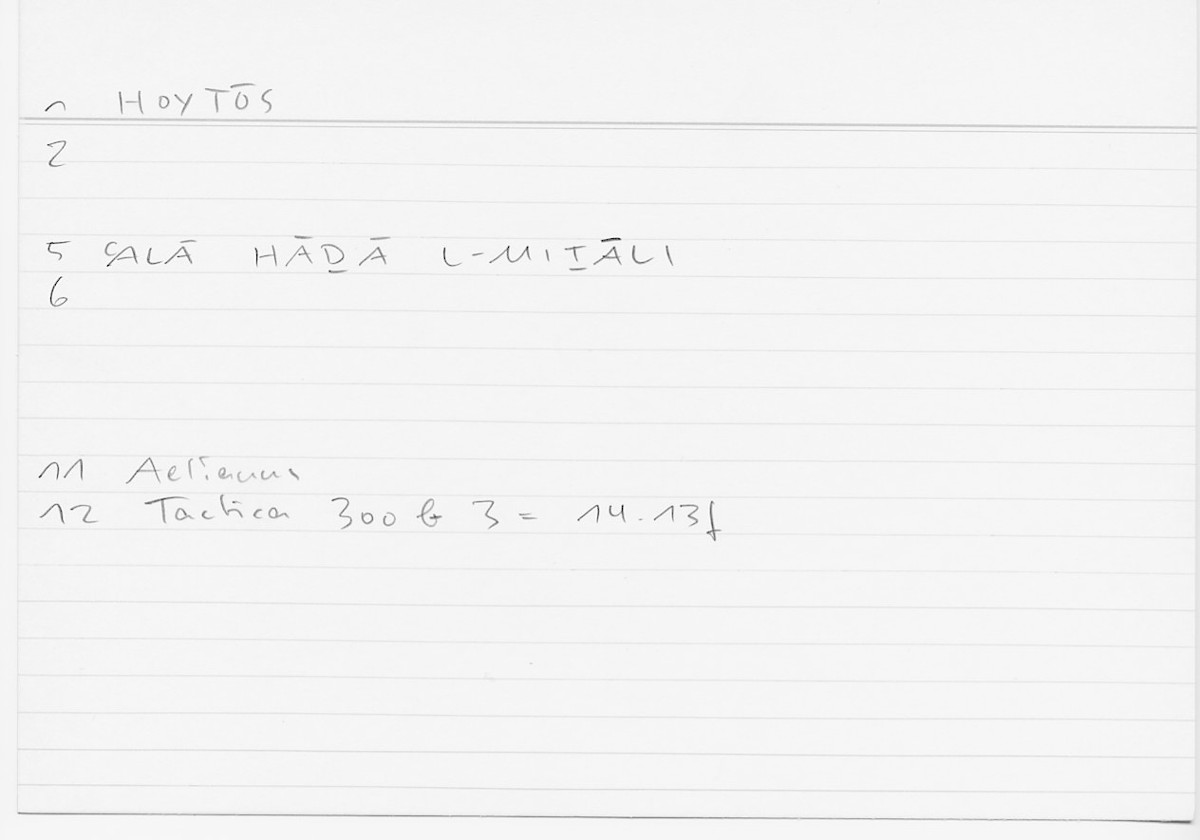 1 HOYTŌS
2
5 ʿALĀ HĀḎĀ L-MIṮĀLI
6
11 Aelianus
12 Tactica 300 b 3 = 14.13f